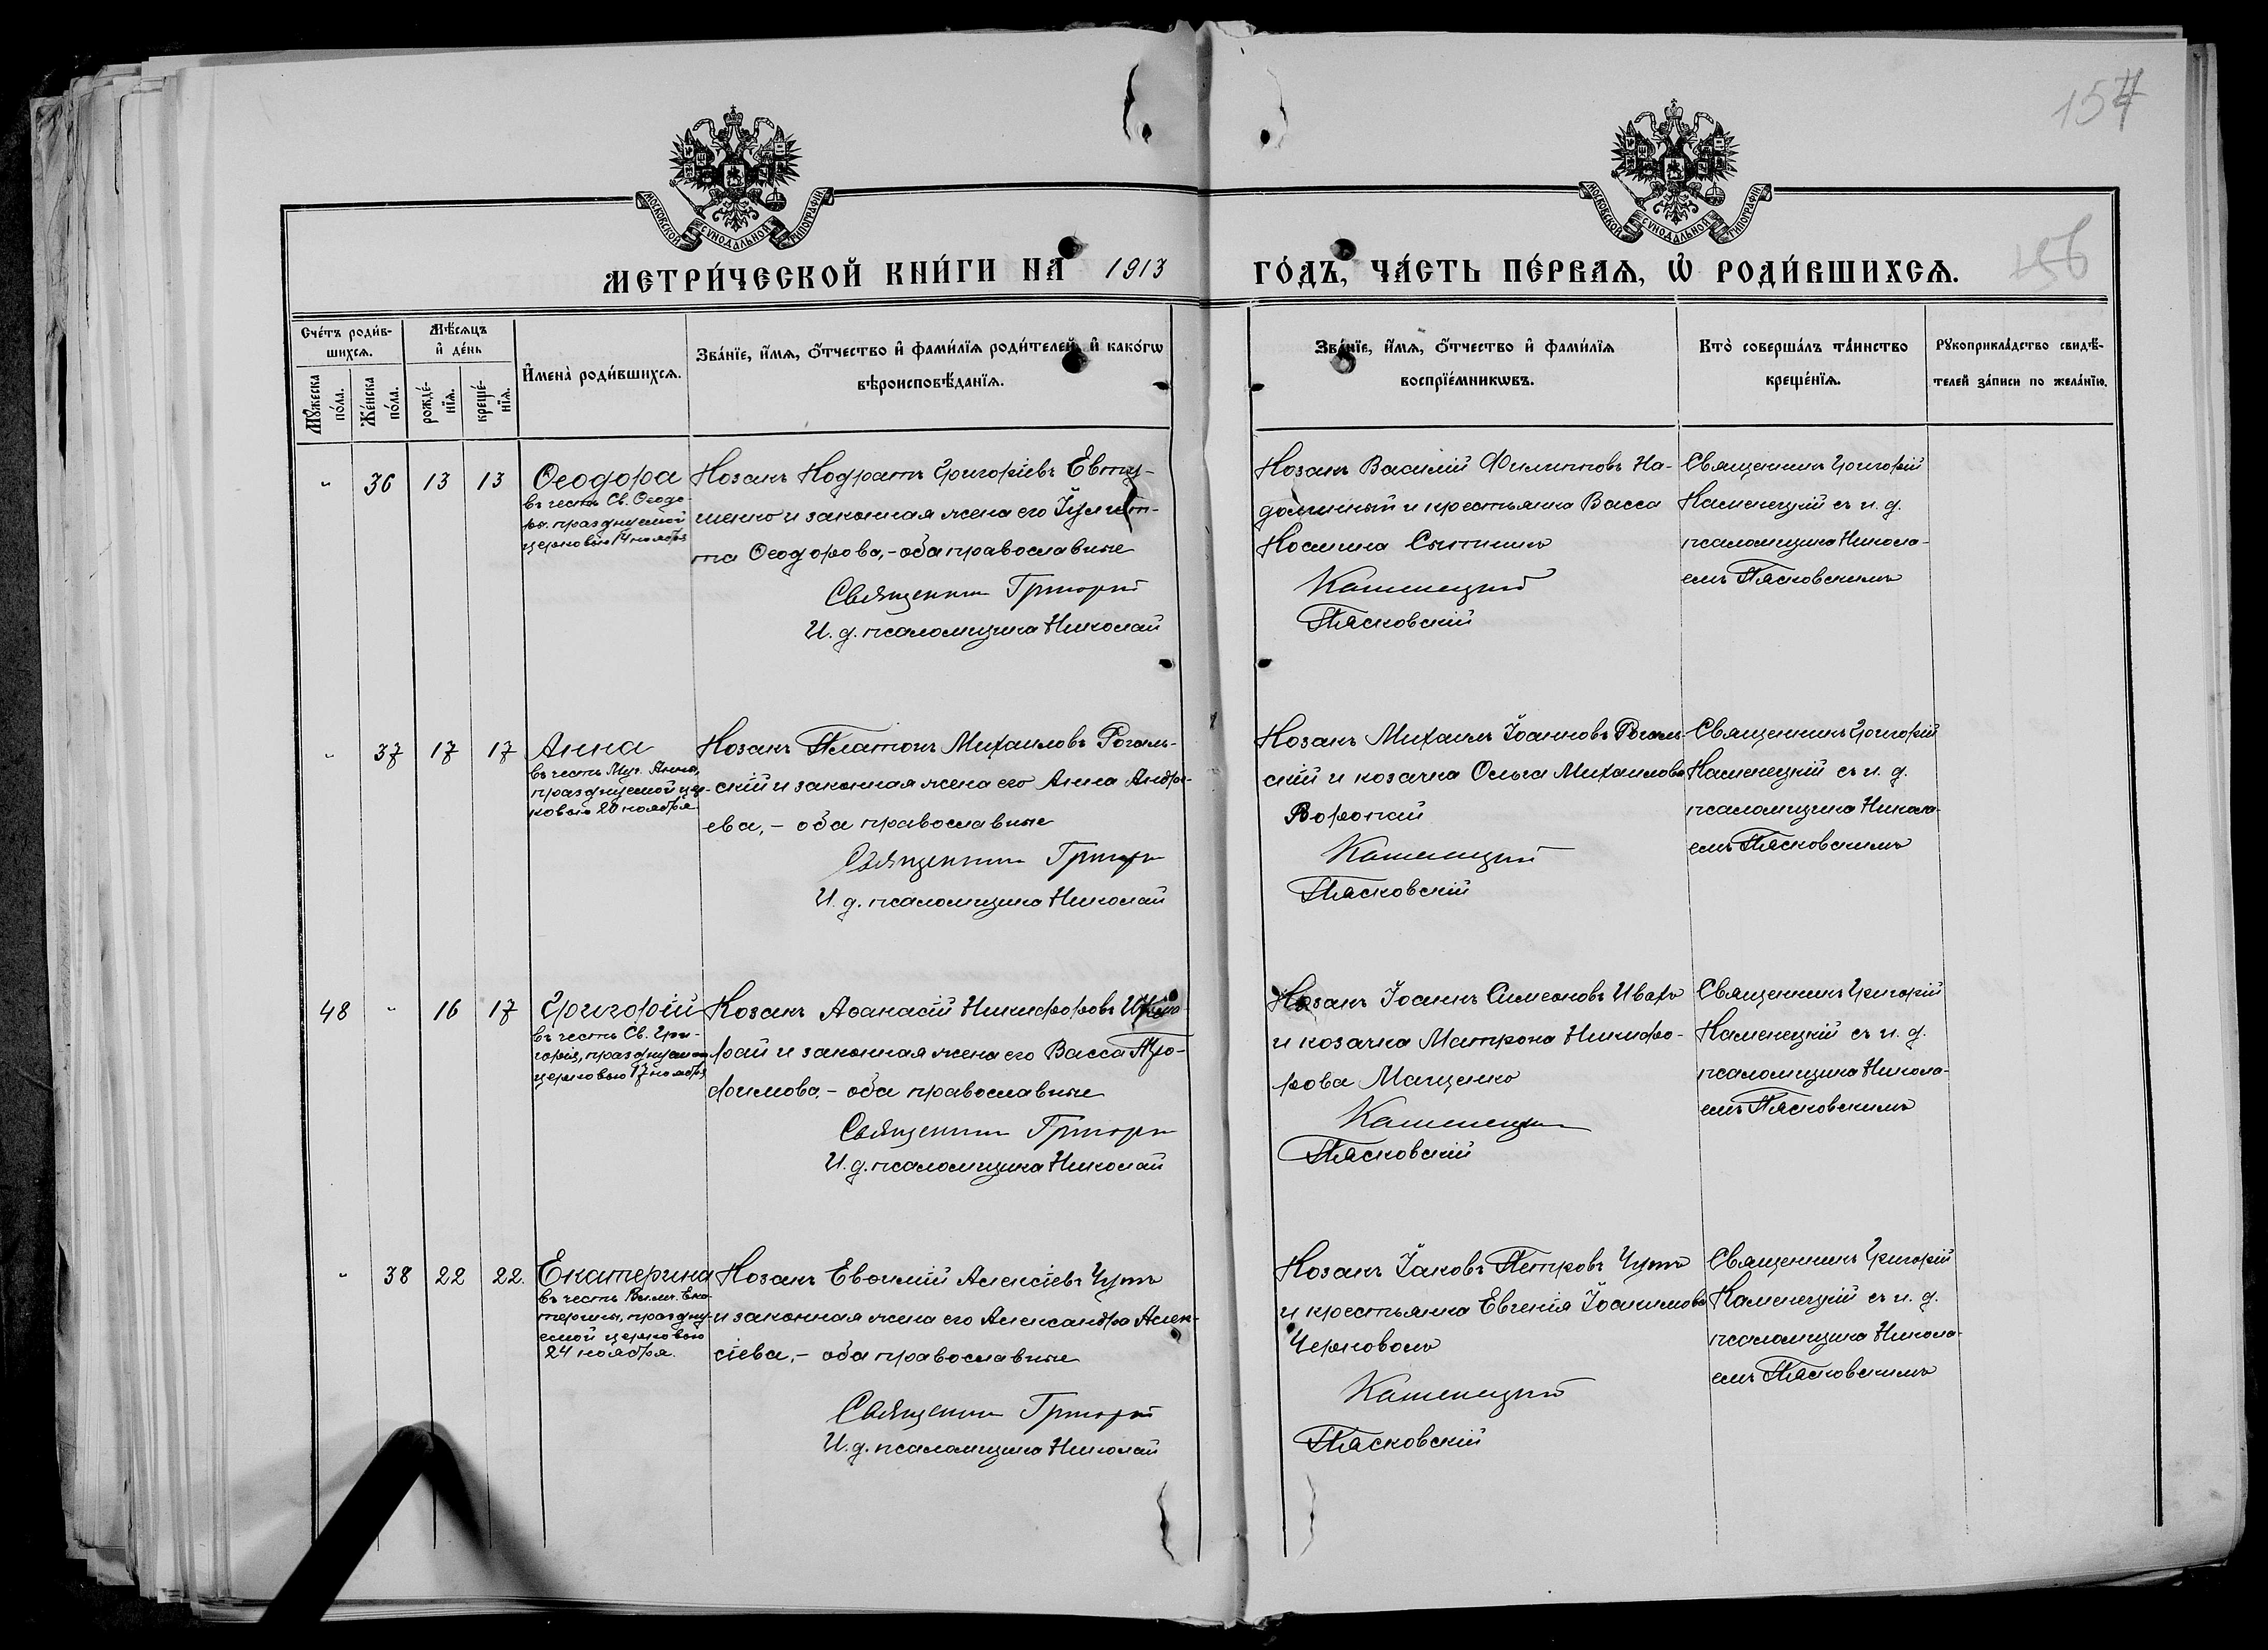 154
156
МОСКОВСКОЙ СУНОДАЛЬНОЙ ТИПОГРАФІИ
МОСКОВСКОЙ СУНОДАЛЬНОЙ ТИПОГРАФІИ
МЕТРИ́ЧЕСКОЙ КНИ́ГИ НА 1913 ГО́ДЪ, ЧА́СТЬ ПЕ́РВАЯ, Ѡ҆ РОДИ́ВШИХСЯ.
Сче́тъ роди́в-
шихся.
Мѣ́сяцъ
и҆ де́нь
Мꙋ́жеска
по́ла.
Же́нска
по́ла.
рожде́-
нїя.
креще́-
нїя.
И҆мена̀ роди́вшихся.
Зва́нїе, и҆́мя, о҆́тчество и҆ фами́лїя роди́телей, и҆ како́гѡ
вѣроисповѣ́данїя.
Зва́нїе, и҆́мя, о҆́тчество и҆ фами́лїя
воспрїе́мникѡвъ.
Кто̀ соверша́лъ та́инство
креще́нїя.
Рꙋкоприкла́дство свидѣ́-
телей за́писи по жела́нїю.
" 36 13 13
Ѳеодора
въ честь Св. Ѳеодо-
ры, празднуемой
церковью 14 ноября
Козакъ Кодратъ Григоріевъ Евту-
шенко и законная жена его Іулит-
та Ѳеодорова, - оба православные
Священник Григорий
И. д. псаломщика Николай
Козакъ Василій Филипповъ На-
и крестьянка Васса
Каменецкий
Пясковскій
Священникъ Григорій
Каменецкій съ и. д.
псаломщика Никола-
емъ Пясковскимъ
" 37 17 17
Анна
въ честь Муч. Анны,
празднуемой цер-
ковью 20 ноября
Козакъ Платонъ Михаиловъ Рогаль-
скій и законная жена его Анна Андре-
ева, - оба православные
Священник Григорий
И. д. псаломщика Николай
Козакъ Михаилъ Іоанновъ Рогаль-
скій и козачка Ольга Михаилова
Воропай
Каменецкий
Пясковскій
Священникъ Григорій
Каменецкій съ и. д.
псаломщика Никола-
емъ Пясковскимъ
48 " 16 17
Григорій
въ честь Св. Гри-
горія, празднуемаго
церковью 17 ноября
Козакъ Аѳанасій Никифоровъ
и законная жена его Васса Тро-
фимова, - оба православные
Священник Григорий
И. д. псаломщика Николай
Козакъ Іоаннъ Симеоновъ Иваха
и козачка Матрона Никифо-
рова Мащенко
Каменецкий
Пясковскій
Священникъ Григорій
Каменецкій съ и. д.
псаломщика Никола-
емъ Пясковскимъ
" 38 22 22.
Екатерина
въ честь Вълмч. Ека-
терины, праздну-
емой церковью
24 ноября.
Козакъ Евѳимій Алексіевъ Чупъ
и законная жена его Александра Алек-
сіева, - оба православные
Священник Григорий
И. д. псаломщика Николай
Козакъ Іаковъ Петровъ Чупъ
и крестьянка Евгенія Іоакимова
Каменецкий
Пясковскій
Священникъ Григорій
Каменецкій съ и. д.
псаломщика Никола-
емъ Пясковскимъ